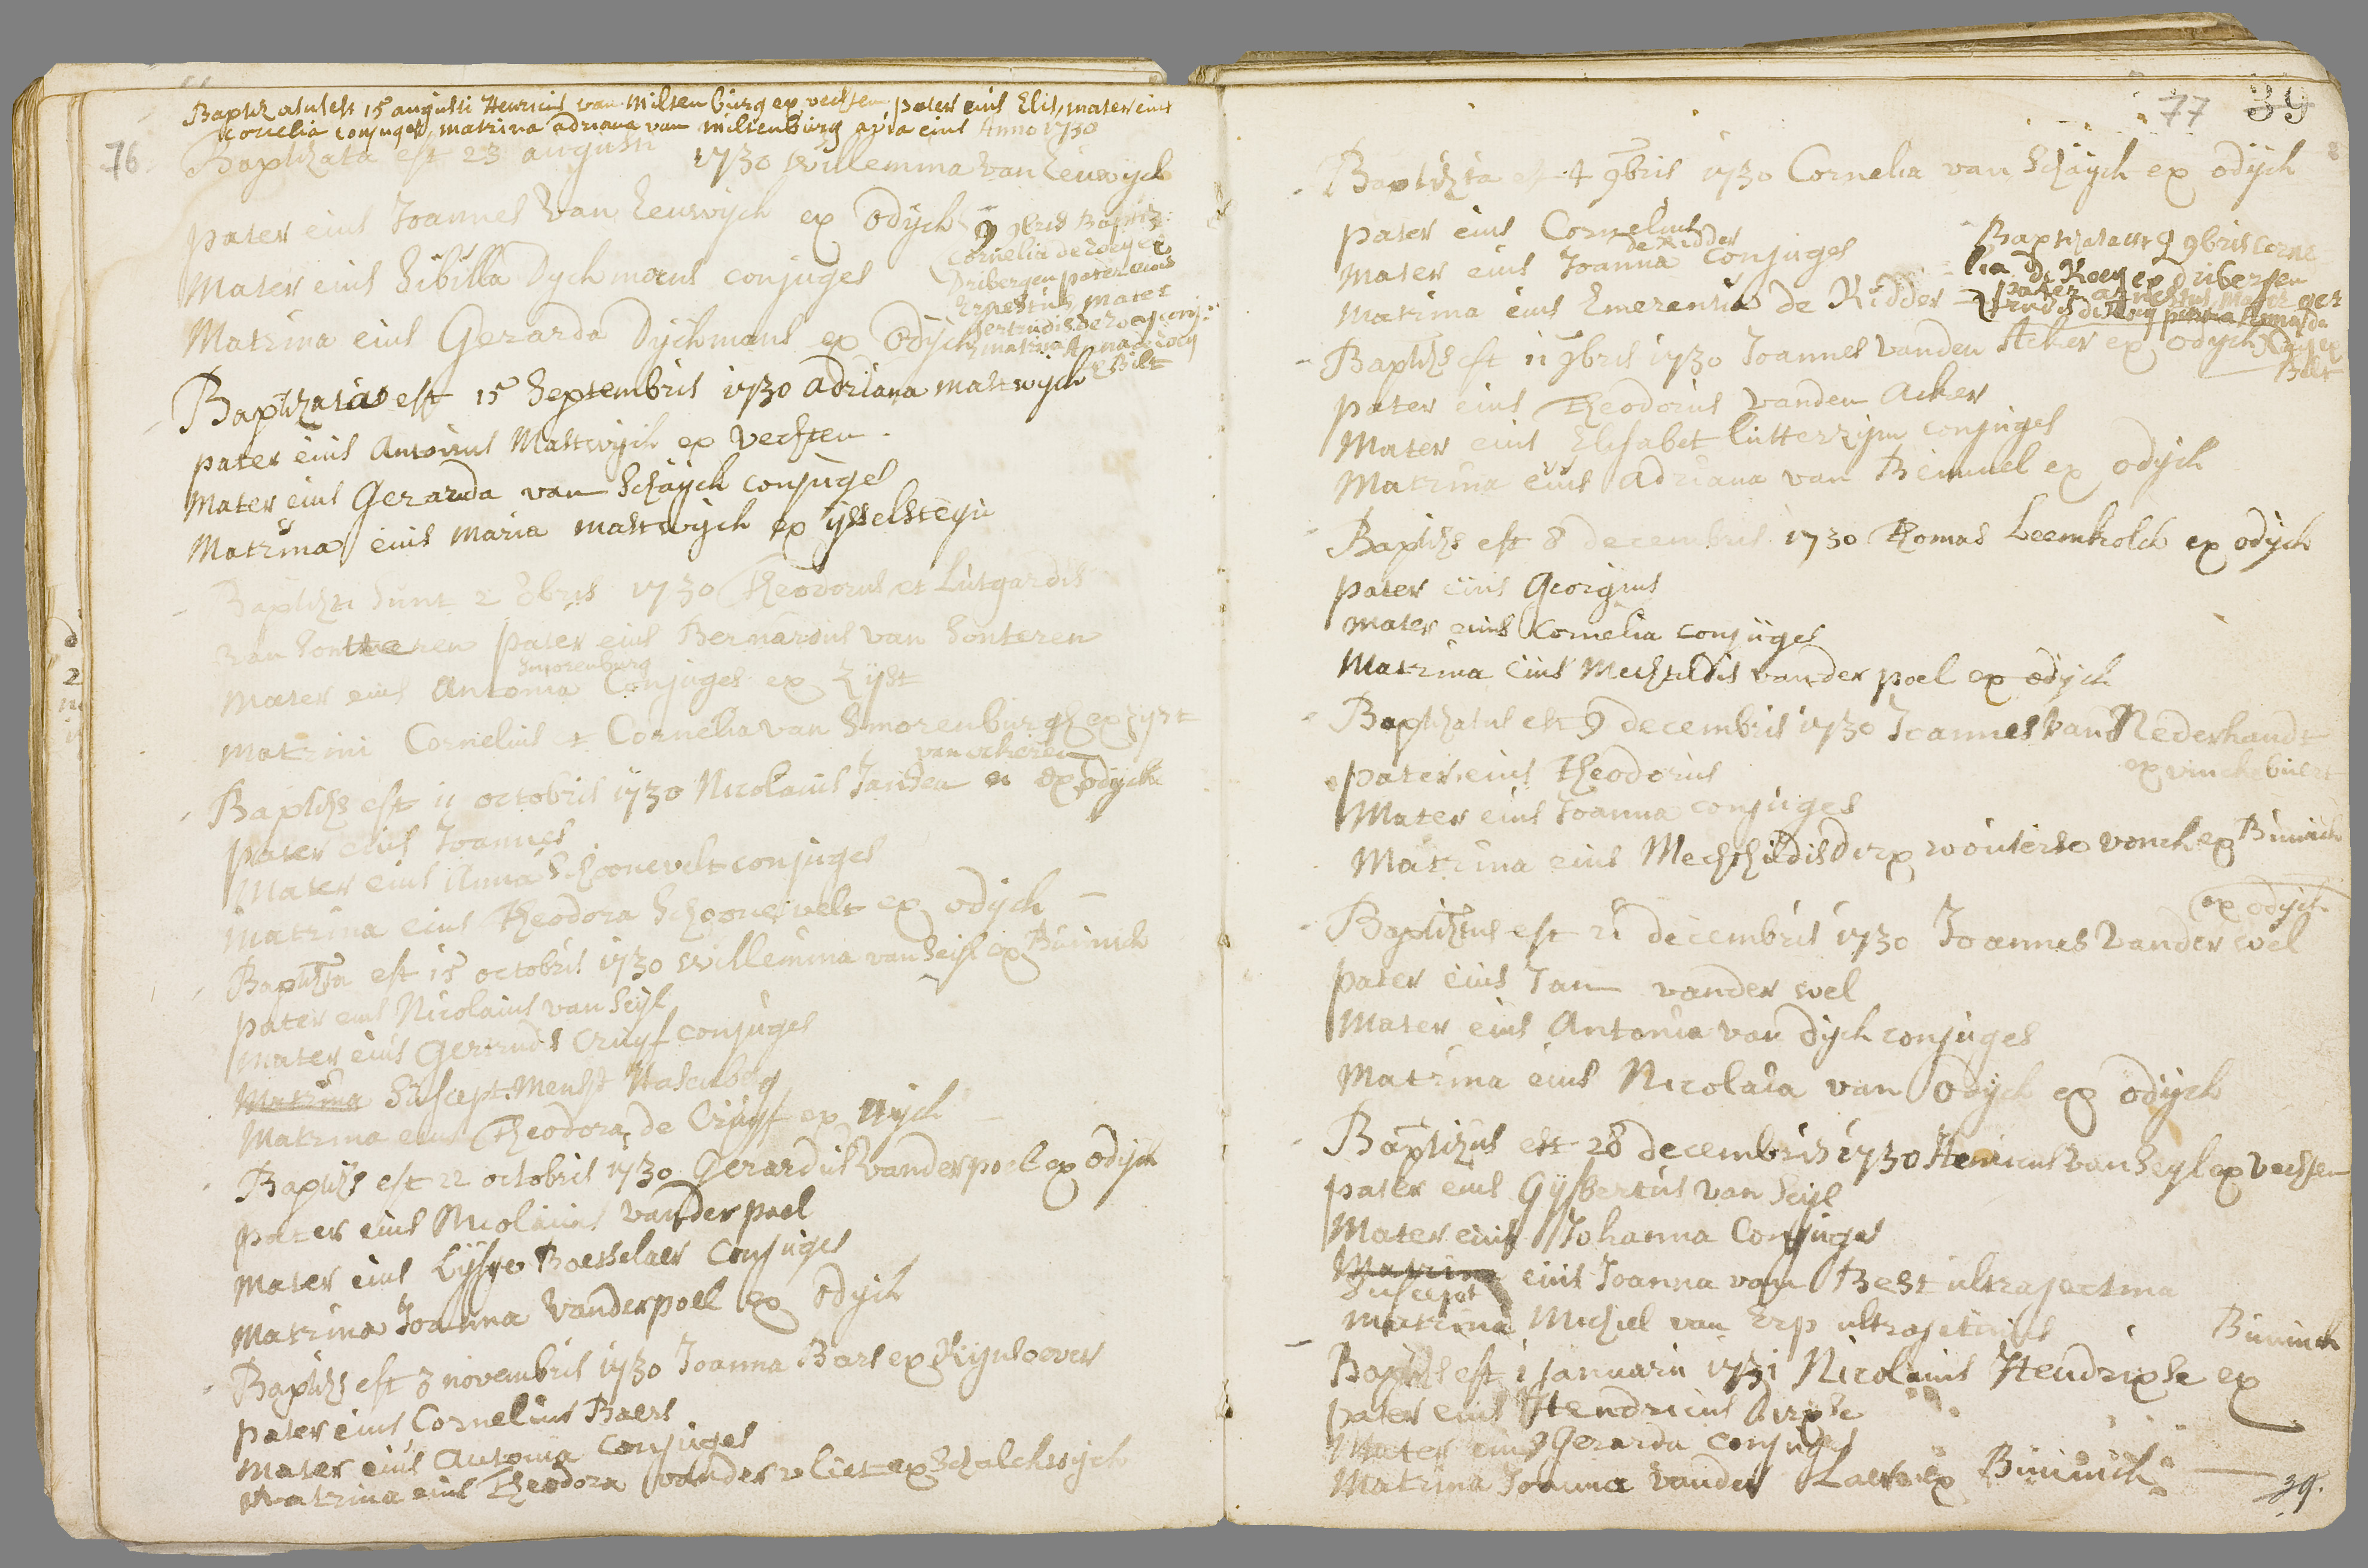 76
Baptizatus est 15 augusti Henricus van Miltenburg ex vechten pater eius Elis, mater eius
Cornelia conjuges, matrina adriana van miltenburg avia eius Anno 1730
Baptizata est 23 augusti 1730 Willemina van Leuwijck
pater eius Joannes van Leuwijck ex Odijck
Mater eius Sibilla Dychmans conjuges
Matrina eius Gerarda Dychmans ex Odijck
9 9bris Baptiz:
Cornelia de roey ex
Dribergen pater eius
Ernestus mater
gertrudis de roey conj:
matrina Anna de roey
ex Bilt
Baptizata est 15 Septembris 1730 adriana mastwijck
pater eius Antonius Mastwijck ex Vechten
Mater eius Gerarda van Schayck conjuges
Matrina eius Maria mastwijck ex ijsselsteyn
Baptizati sunt 2 8bris 1730 Theodorus et Lutgardis
van Sonteren pater eius Bernardus van Sonteren
Smorenburg
mater eius Antonia Conjuges ex Zijst
matrini Cornelius et Cornelia van Smorenburgh ex zijst
van ackeren
Baptizs est 11 octobris 1730 Nicolaius Jansen ex odyck
pater eius Joannes
Mater eius Anna Schoonevelt conjuges
matrina eius Theodora Schoonevelt ex odijck
Baptizta est 15 octobris 1730 Willemina van Seijl ex Bunnick
pater eius Nicolaius van Seijl
mater eius Gertrudis Cruyf conjuges
Matrina Suscept. Menst Hasenberg
Matrina eius Theodora de Cruyf ex
Baptizs est 22 octobris 1730 Gerardus vanderpoel ex odijck
pater eius Nicolaius vanderpoel
mater eius Lijsye Boesselaer Conjuges
matrina Joanna vanderpoel ex odijck
Baptizs est 3 novembris 1730 Joanna Bars ex Rijnsoever
pater eius Cornelius Baers
mater eius Antonia Conjuges
matrina eius Theodora vander vliet ex Schalckwijck
77 39
Baptizta est 4 9bris 1730 Cornelia van Schayck ex odijck
pater eius Cornelius
de Ridder
mater eius Joanna Conjuges
matrina eius Emerentia de Ridder
Baptizata est 9 9bris Corne
lia de Roey ex dribergen
pater ernestus mater ger
trudis de Roey Anna de
Roey ex
Bilt
Baptizs est 11 9bris 1730 Joannes vanden Acker ex odijck
pater eius Theodorus vanden Acker
Mater eius Elisabet Lutterzijm conjuges
Matrina eius Adriana van Bemmel ex odijck
Baptizs est 8 decembris 1730 Thomas Leemkolck ex odijck
pater eius Georgius
mater eius Cornelia conjuges
Matrina eius Mechteldis vander poel ex odijck
Baptizatus est 9 decembris 1730 Joannes van Nederhandt
pater eius Theodorus ex vinckebuert
Mater eius Joanna conjuges
Matrina eius Mechtildis dirx wouterse vonck ex Bunnick
ex odijck
Baptiztus est 21 decembris 1730 Joannes vander wel
pater eius Jan vander wel
Mater eius Antonia van Dijck conjuges
Matrina eius Nicolaia van Odijck ex odijck
Baptizus est 28 decembris 1730 Henricus van Seyl ex Vechten
pater eius Gysbertus van Seijl
Mater eius Johanna Conjuges
Matrina eius Joanna van Best ultrajectina
Suscept
matrina Michiel van Erp ultrajectinus
Bunnick
Baptizs est 1 januarii 1731 Nicolaius Hendrixse ex
pater eius Hendricus Dirxse
Mater eius Gerarda conjuges
Matrina Joanna vander Laer ex Bunnick
39.